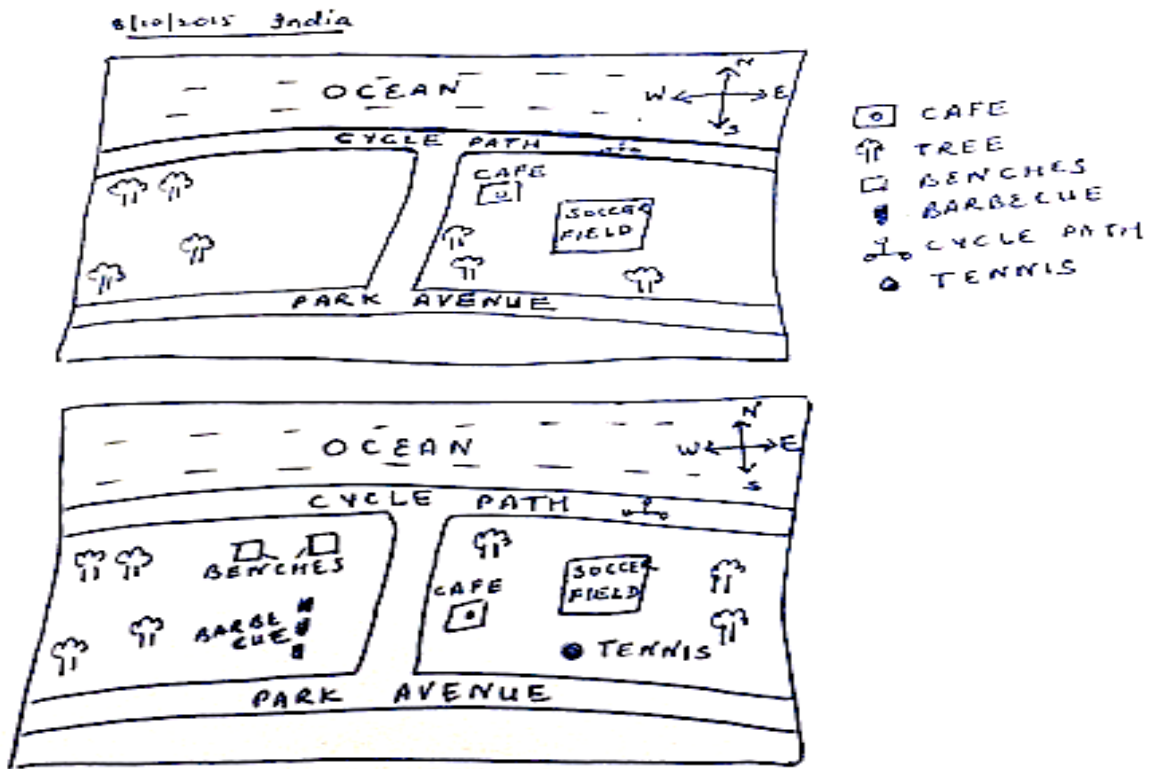 8/10/2015 India
OCEAN
N
W E
S
CYCLE PATH
CAFE
SOCCER
FIELD
PARK AVENUE
CAFE
TREE
BENCHES
BARBECUE
CYCLE PATH
TENNIS
OCEAN
N
W E
S
CYCLE PATH
BENCHES
BARBE
CUE
CAFE
SOCCER
FIELD
TENNIS
PARK AVENUE